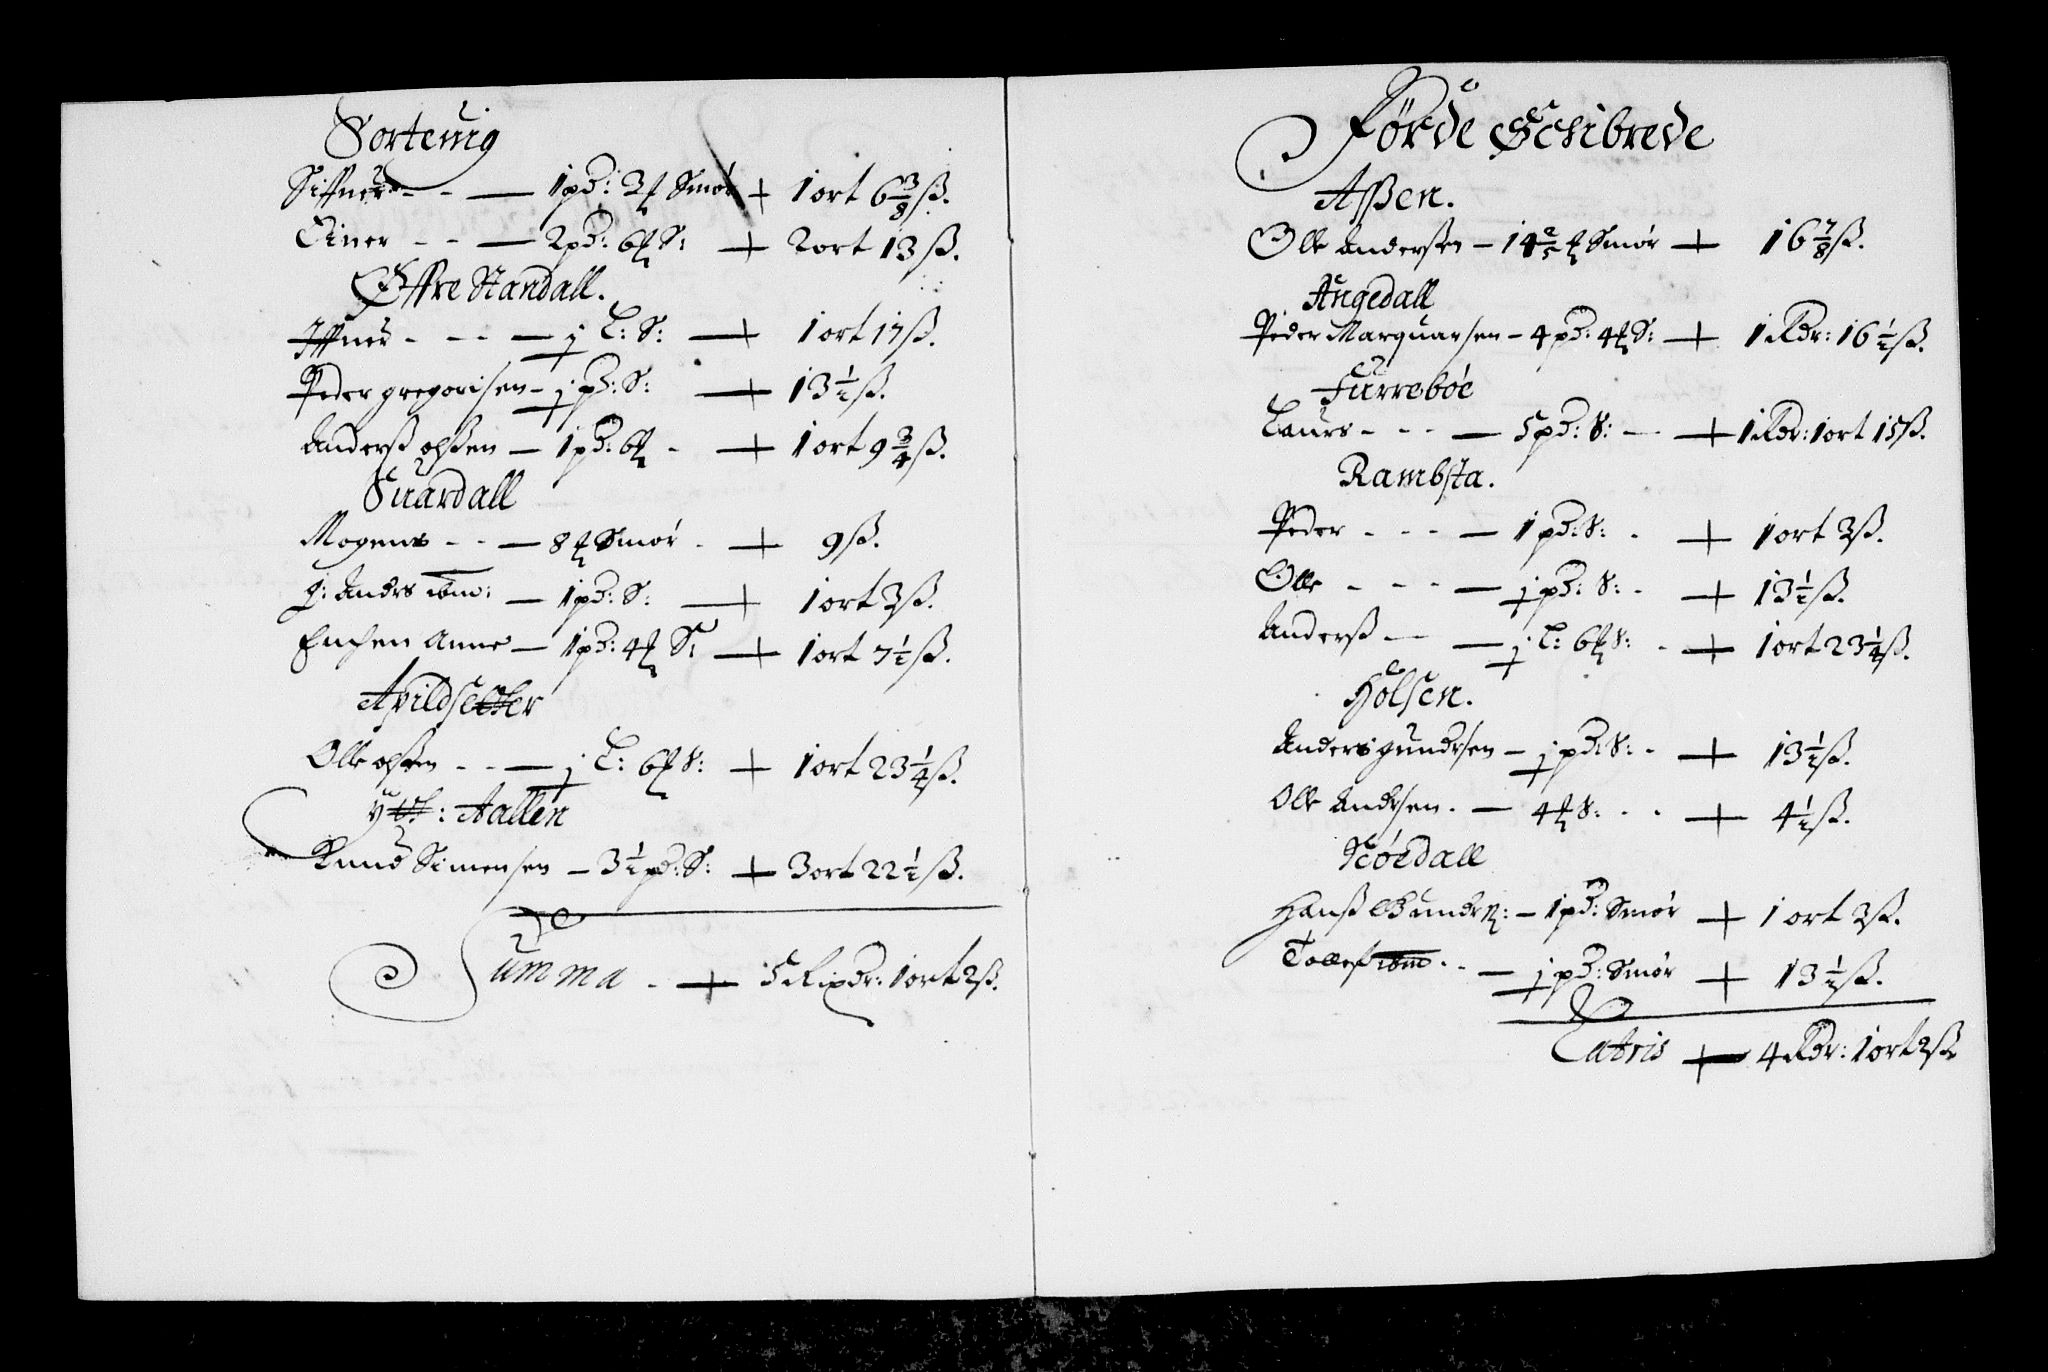 Sorteuig
Siffuer - - — 1 pd: 3 ℔ Smør + 1 ort 6 3/8 ß.
Einer - - — 2 pd: 6 ℔ S: + 2 ort 13 ß.
Øffre Standall.
Iffuer - - - — j L: S: + 1 ort 17 ß.
Peder gregorisen - j pd: S: + 13 1/2 ß.
Anderß olßen — 1 pd: 6 ℔ - + 1 ort 9 3/4 ß.
Suardall
Mogens - - — 8 ℔ Smør - + 9 ß.
Anders ibm: — 1 pd: S: + 1 ort 3 ß.
Enchen Anne — 1 pd: 4 ℔ S: + 1 ort 7 1/2 ß.
Apildsetter
Olle olsen - - — j L: 6 ℔ S: + 1 ort 23 1/4 ß.
: Aallen
Knud Simensen — 3 1/2 pd: S: + 3 ort 22 1/2 ß.
Summa - + 5 Rixdr: 1 ort 2 ß.
Førde Schibrede
Aßen.
Olle Anderßen — 14 2/5 ℔ Smør + 16 7/8 ß.
Angedall
Peder Marquarsen - 4 pd: 4 ℔ S: + 1 Rdr: 16 1/2 ß.
Furrebøe
Laurs - - - — 5 pd: S: — + 1 Rdr: 1 ort 15 ß.
Rambsta.
Peder - - - — 1 pd: S: - + 1 ort 3 ß.
Olle - - - — j pd: S: - + 13 1/2 ß.
Anderß - — j L: 6 ℔ S: - + 1 ort 23 1/4 ß.
Holsen.
Anders gundersen — j pd: S: - + 13 1/2 ß.
Olle Andersen. — 4 ℔ S: - - + 4 1/2 ß.
Hanß Gunders: — 1 pd: Smør + 1 ort 3 ß.
Tollef ibm - - — j pd: Smør + 13 1/2 ß.
Latris + 4 Rdr: 1 ort 2 ß